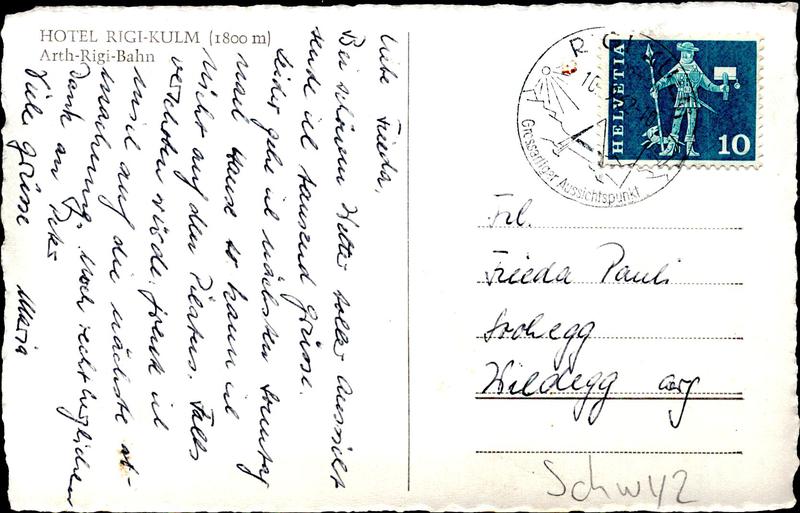 HOTEL RIGI-KULM (1800 m)
Arth-Rigi-Bahn
Liebe Frieda,
Bei schönem Wetter toller Aussicht
sende ich tausend Grüsse.
Leider gehe ich nächsten Sonntag
nach Hause so kann ich
nicht auf den Pilatus. Falls
verschoben würde, freue ich
mich auf die nächste
machung. Noch recht herzlichen
Dank an Peter
Viele Grüsse Maria
RIGI
HELVETIA
10
Grossartiger Aussichtspunkt
Frl.
Frieda Pauli
Wildegg arg
Schwyz